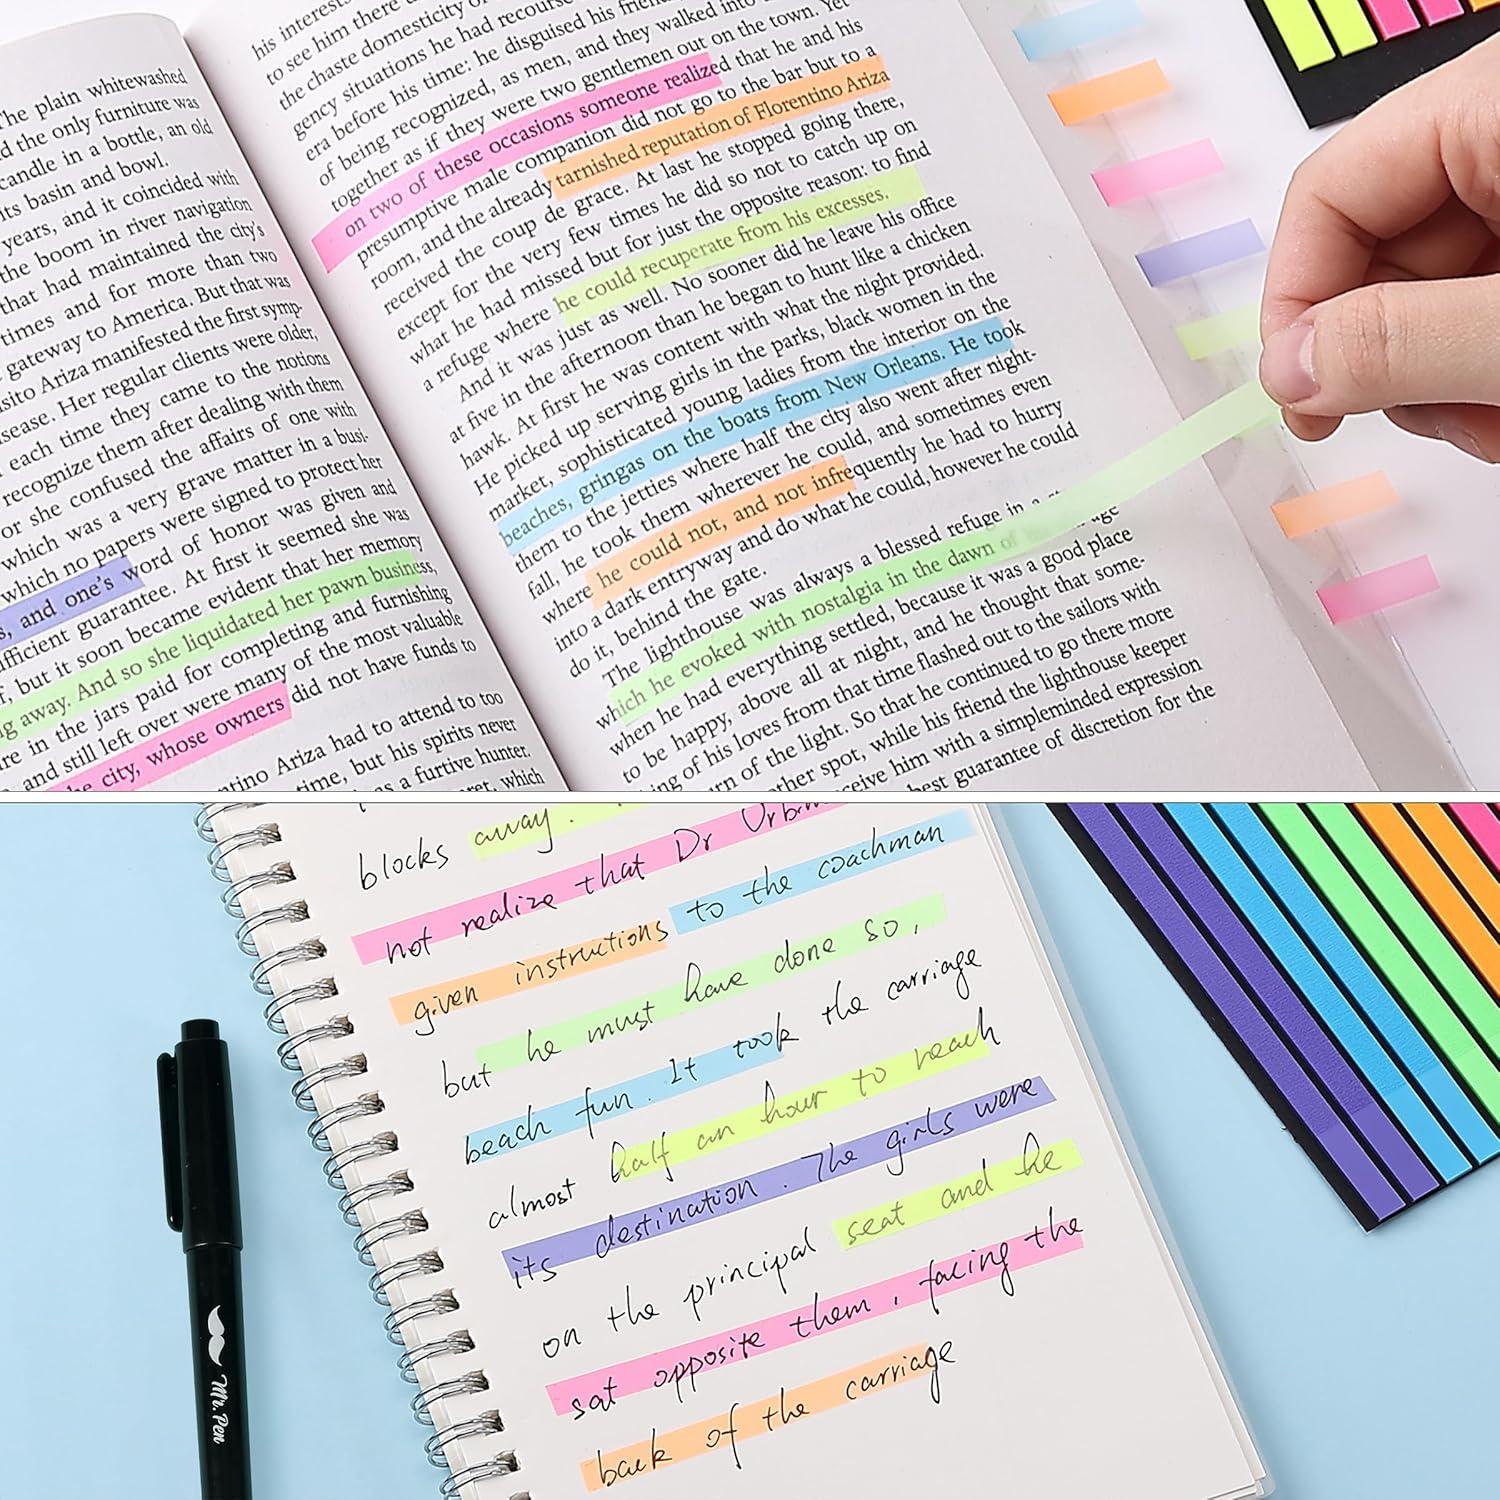 The plain whitewashed
d the only furniture was
candle in a bottle, an old
its basin and bowl.
years, and it coincided with
the boom in river navigation
that had maintained the city's
times and for more than two
gateway to America. But that was
sito Ariza manifested the first symp-
sease. Her regular clients were older,
each time they came to the notions
recognize them after dealing with them
or she confused the affairs of one with
which was a very grave matter in a busi-
which no papers were signed to protect her
s, and one's word of honor was given and
ufficient guarantee. At first it seemed she was
f, but it soon became evident that her memory
ng away. And so she liquidated her pawn business,
re in the jars paid for completing and furnishing
and still left over were many of the most valuable
he city, whose owners did not have funds to
ntino Ariza had to attend to too
time, but his spirits never
as a furtive hunter.
ret, which
his interests
to see him there
the chaste domesticity of
gency situations he had recourse
era before his time: he disguised his
of being recognized, as men, and they walked into
together as if they were two gentlemen out on the town. Yet
on two of these occasions someone realized that he and his
presumptive male companion did not go to the bar but to a
room, and the already tarnished reputation of Florentino Ariza
received the coup de grace. At last he stopped going there,
except for the very few times he did so not to catch up on
what he had missed but for just the opposite reason: to find
a refuge where he could recuperate from his excesses.
And it was just as well. No sooner did he leave his office
at five in the afternoon than he began to hunt like a chicken
hawk. At first he was content with what the night provided.
He picked up serving girls in the parks, black women in the
market, sophisticated young ladies from the interior on the
beaches, gringas on the boats from New Orleans. He took
them to the jetties where half the city also went after night-
fall, he took them wherever he could, and sometimes even
where he could not, and not infrequently he had to hurry
into a dark entryway and do what he could, however he could
do it, behind the gate.
The lighthouse was always a blessed refuge in a
which he evoked with nostalgia in the dawn of
when he had everything settled, because it was a good place
to be happy, above all at night, and he thought that some-
ing of his loves from that time flashed out to the sailors with
urn of the light. So that he continued to go there more
other spot, while his friend the lighthouse keeper
ceive him with a simpleminded expression
best guarantee of discretion for the
blocks away.
not realize that Dr Urbin
given instructions to the coachman
but he must have done so,
beach fun. It took the carriage
almost half an hour to reach
its destination. The girls were
on the principal seat and he
sat opposite them, facing the
back of the carriage
Mr. Pen